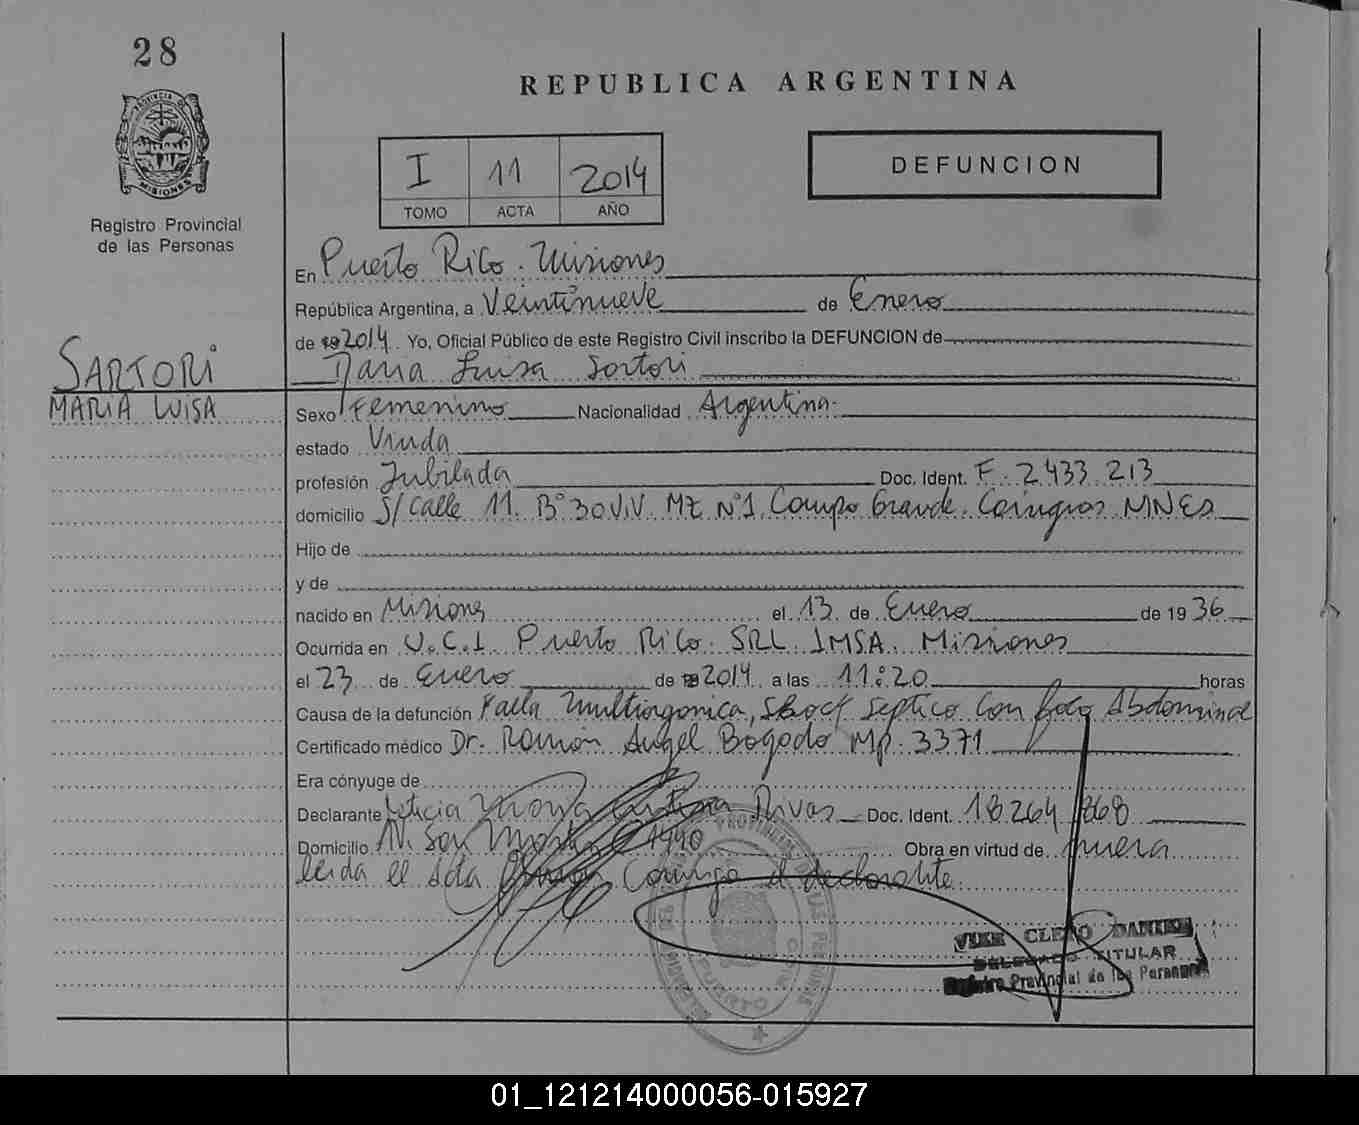 28
REPUBLICA ARGENTINA
PROVINCIA DE
MISIONES
Registro Provincial
de las Personas
I 11 2014
TOMO ACTA AÑO
DEFUNCION
En Puerto Rico. Misiones
República Argentina, a Veintinueve de Enero
de 19 2014 Yo, Oficial Público de este Registro Civil inscribo la DEFUNCION de
Maria Luisa Sartori
SARTORI
MARIA LUISA
Sexo Femenino Nacionalidad Argentina
estado Viuda
profesión Jubilada Doc. Ident. F. 2.433.213
domicilio S/ Calle 11. B° 30 Viv. MZ N°1. Campo Grande. MNES
Hijo de
y de
nacido en Misiones el 13 de Enero de 1936
Ocurrida en U.C.I. Puerto Rico. SRL. IMSA. Misiones
el 23 de Enero de 19 2014 a las 11:20 horas
Causa de la defunción Falla Multiorgonica, Shock Septico Con foco Abdominal
Certificado médico Dr. Ramón Angel Bogado Mp. 3371
Era cónyuge de
Declarante Leticia Rivas Doc. Ident. 18.264.868
Domicilio AV. San Martin 1440 Obra en virtud de
leida el Acta Conmigo el declarante
DELEGADO TITULAR
Registro Provincial de las Personas
01_121214000056-015927